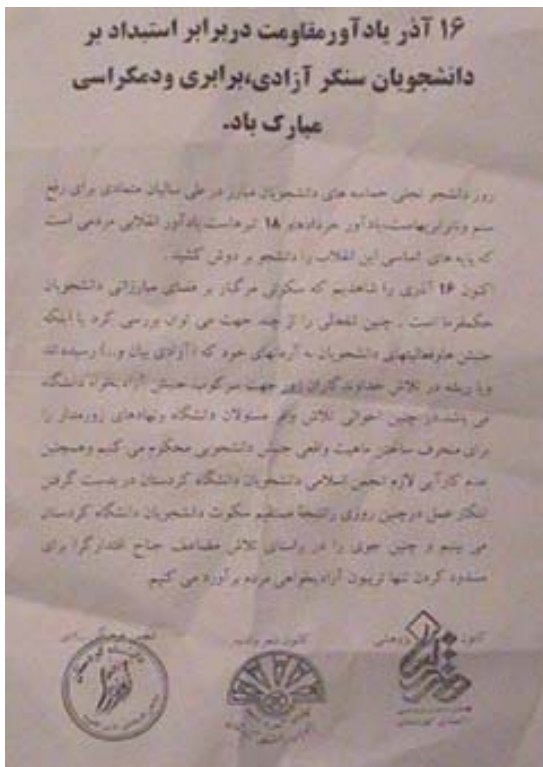 ۱۶ آذر یادآورمقاومت دربرابر استبداد بر
دانشجویان سنگر آزادی،برابری ودمکراسی
مبارک باد.
روز دانشجو تجلی حماسه های دانشجویان مبارز در طی سالیان متمادی برای رفع
ستم ونابرابریهاست،یادآور خردادهاو ۱۸ تیرهاست،یادآور انقلابی مردمی است
که پایه های اساسی این انقلاب را دانشجو بر دوش کشید.
اکنون ۱۶ آذری را شاهدیم که سکوتی مرگبار بر فضای مبارزاتی دانشجویان
حکمفرما است . چنین انفعالی را از چند جهت می توان بررسی کرد یا اینکه
جنبش هاوفعالیتهای دانشجویان به آرمانهای خود که (آزادی بیان و...) رسیده اند
ویا ریشه در تلاش خداوندگاران زور جهت سرکوب جنبش آزادیخواه دانشگاه
می باشد.در چنین احوالی تلاش وافر مسئولان دانشگاه ونهادهای زورمدار را
برای منحرف ساختن ماهیت واقعی جنبش دانشجویی محکوم می کنیم وهمچنین
عدم کارآیی لازم انجمن اسلامی دانشجویان دانشگاه کردستان در بدست گرفتن
ابتکار عمل درچنین روزی رانتیجۀ مستقیم سکوت دانشجویان دانشگاه کردستان
می بینیم و چنین جوی را در راستای تلاش مضاعف جناح اقتدارگرا برای
مسدود کردن تنها تریبون آزادیخواهی مردم برآورد می کنیم.
کانون پژوهشی کانون شعر وادب انجمن